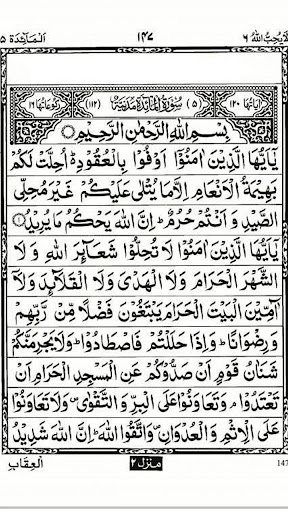 لَا يُحِبُّ اللّٰهُ ٦ ١٤٧ اَلْمَآئِدَة ٥
اٰيَاتُهَا ١٢٠ (٥) سُوْرَةُ الْمَآئِدَةِ مَدَنِيَّةٌ (١١٢) رُكُوْعَاتُهَا ١٦
بِسْمِ اللّٰهِ الرَّحْمٰنِ الرَّحِيْمِ
يٰۤاَيُّهَا الَّذِيْنَ اٰمَنُوْۤا اَوْفُوْا بِالْعُقُوْدِ ؕ اُحِلَّتْ لَكُمْ
بَهِيْمَةُ الْاَنْعَامِ اِلَّا مَا يُتْلٰى عَلَيْكُمْ غَيْرَ مُحِلِّى
الصَّيْدِ وَ اَنْتُمْ حُرُمٌ ؕ اِنَّ اللّٰهَ يَحْكُمُ مَا يُرِيْدُ ۝۱
يٰۤاَيُّهَا الَّذِيْنَ اٰمَنُوْا لَا تُحِلُّوْا شَعَآئِرَ اللّٰهِ وَ لَا
الشَّهْرَ الْحَرَامَ وَ لَا الْهَدْىَ وَ لَا الْقَلَآئِدَ وَ لَاۤ
آٰمِّيْنَ الْبَيْتَ الْحَرَامَ يَبْتَغُوْنَ فَضْلًا مِّنْ رَّبِّهِمْ
وَ رِضْوَانًا ؕ وَ اِذَا حَلَلْتُمْ فَاصْطَادُوْا ؕ وَ لَا يَجْرِمَنَّكُمْ
شَنَاٰنُ قَوْمٍ اَنْ صَدُّوْكُمْ عَنِ الْمَسْجِدِ الْحَرَامِ اَنْ
تَعْتَدُوْا ۘ وَ تَعَاوَنُوْا عَلَى الْبِرِّ وَ التَّقْوٰى ۪ وَ لَا تَعَاوَنُوْا
عَلَى الْاِثْمِ وَ الْعُدْوَانِ ۪ وَ اتَّقُوا اللّٰهَ ؕ اِنَّ اللّٰهَ شَدِيْدُ
الْعِقَابِ منزل ٢ 147